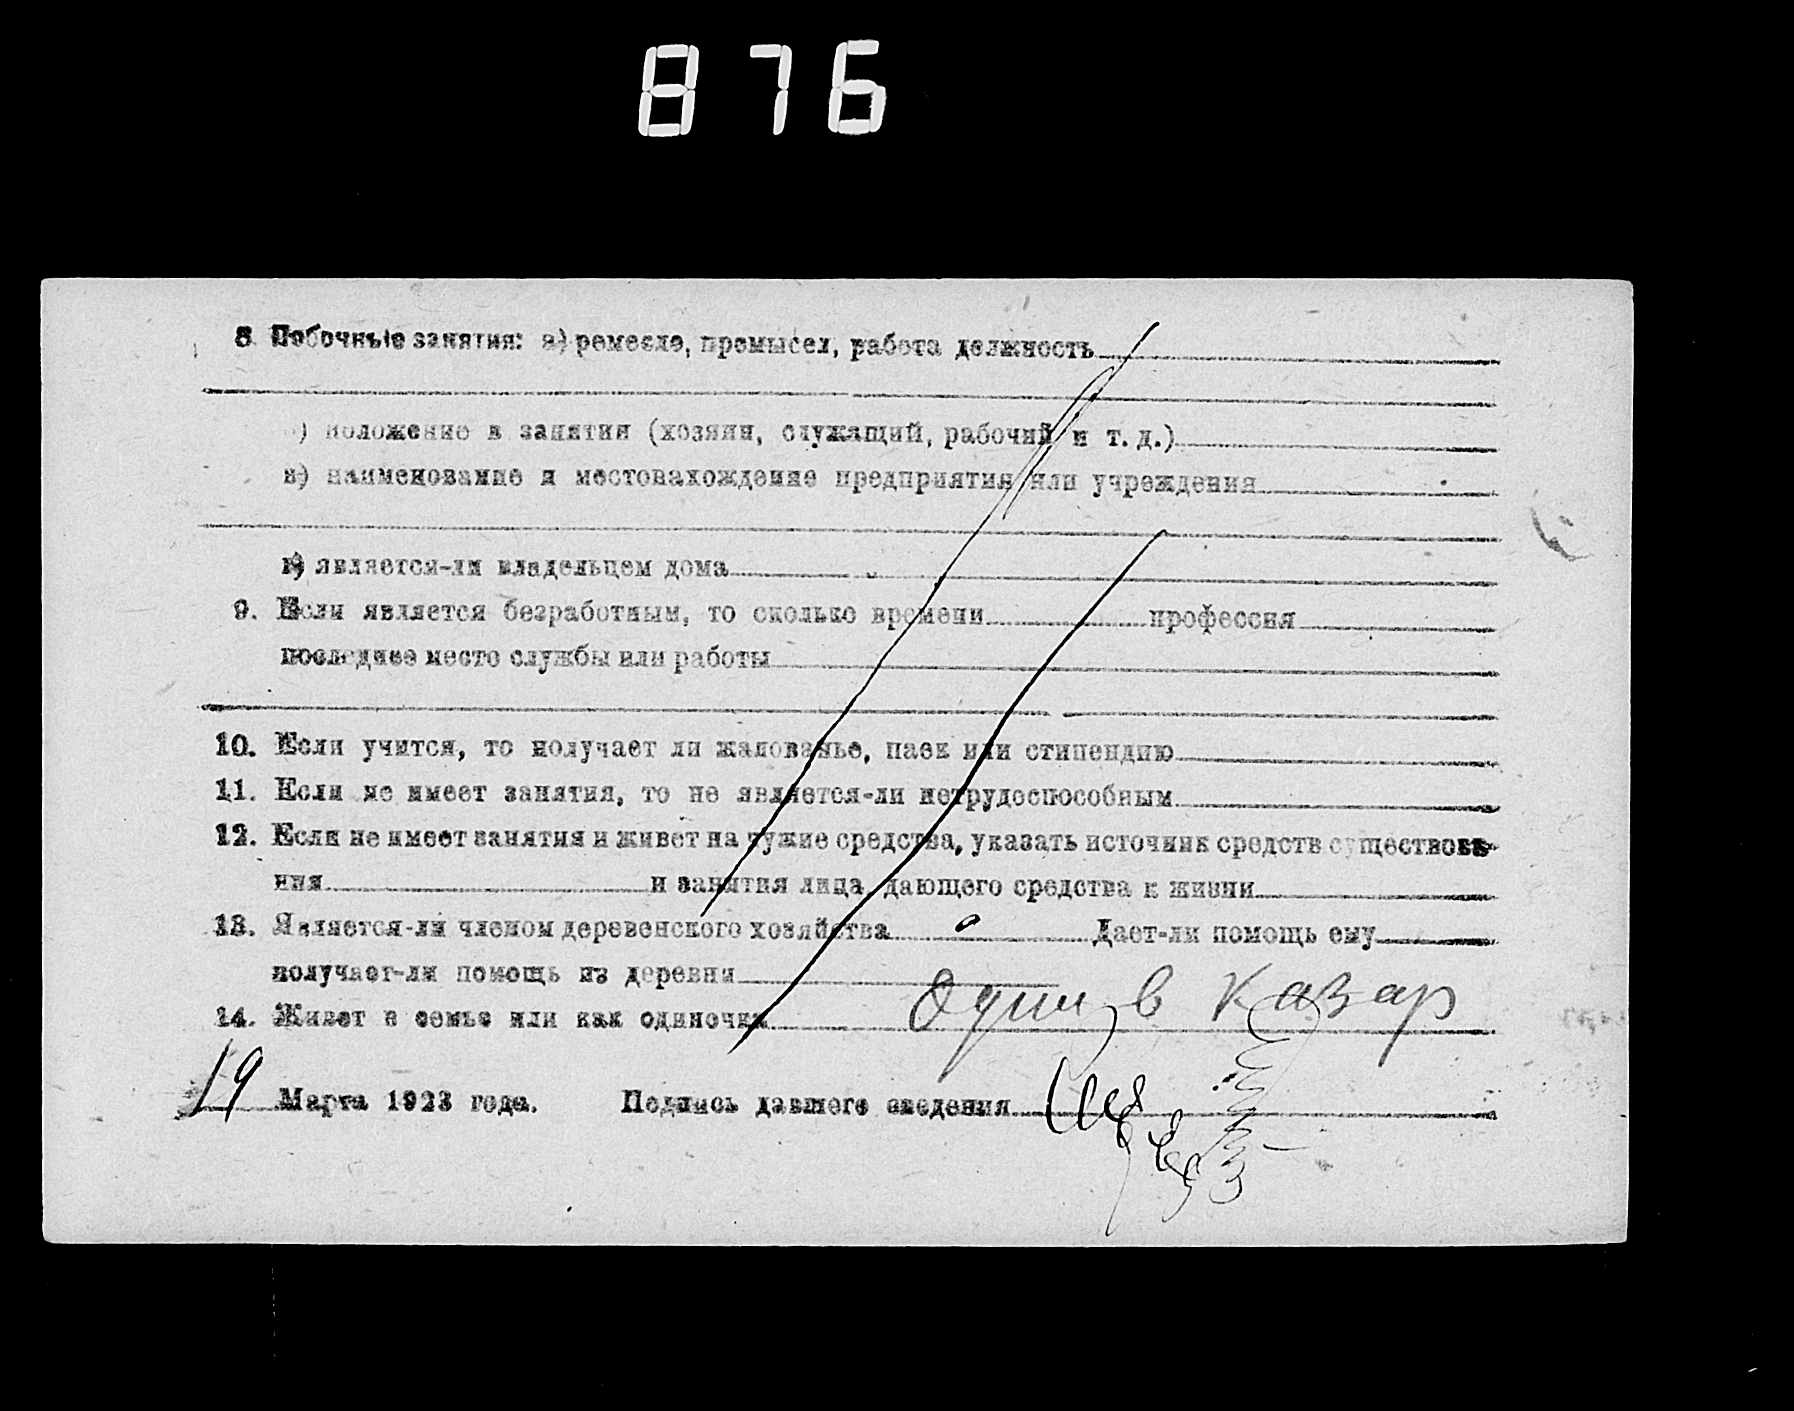 876
8 Побочные занятия: а) ремесло, промысел, работа должность
) положение в занятии (хозяин, служащий, рабочий и т. д.)
в) наименование и местонахождение предприятия или учреждения
г) является-ли владельцем дома
9. Если является безработным, то сколько времени профессия
последнее место службы или работы
10. Если учится, то получает ли жалованье, паек или стипендию
11. Если не имеет занятия, то не является-ли нетрудоспособным
12. Если не имеет занятия и живет на чужие средства, указать источник средств существова-
ния и занятия лица, дающего средства к жизни
13. Является-ли членом деревенского хозяйства Дает-ли помощь ему
получает-ли помощь из деревни
14. Живет в семье или как одиночка один в казар
19 Марта 1923 года. Подпись давшего сведения